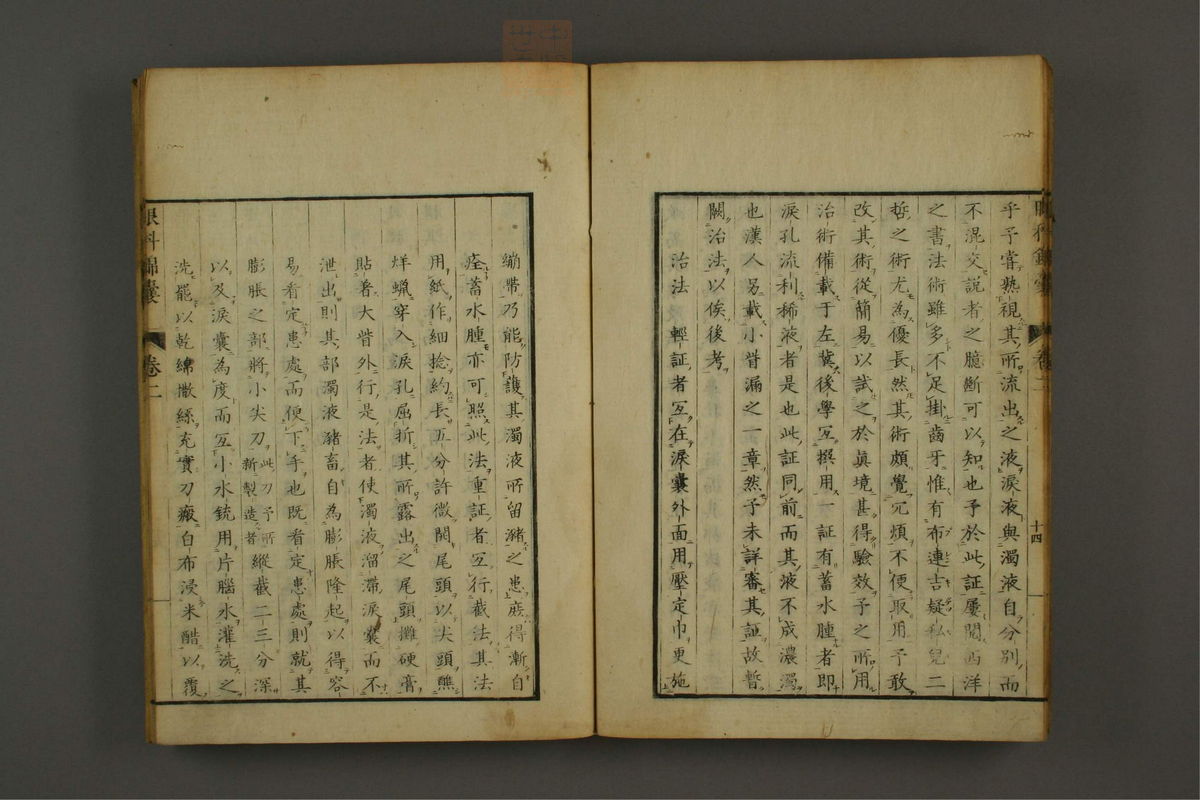 眼科錦囊 卷二 十四
乎予嘗熟視其所流出之液淚液與濁液自分別而
不混交説者之臆斷可以知也予於此証屢閲西洋
之書法術雖多不足掛齒牙惟有布連吉疑私兒二
哲之術尤為優長然其術頗覺冗煩不便取用予敢
改其術從簡易以試之於眞境甚得驗效予之所用
治術備載于左冀後學互撰用一証有蓄水腫者即
淚孔流利稀液者是也此証同前而其液不成濃濁
也漢人另載小眥漏之一章然予未詳審其証故暫
闕治法以俟後考
治法 輕証者互在淚囊外面用壓定巾更施
繃帶乃能防護其濁液所留瀦之患庶得漸自
痊蓄水腫亦可照此法重証者互行截法其法
用紙作細捻約長五分許微開尾頭以尖頭蘸
烊蝋穿入淚孔屈折其所露出之尾頭攤硬膏
貼著大眥外行是法者使濁液溜滯淚囊而不
泄出則其部濁液瀦畜自為膨脹隆起以得容
易看定患處而便下手也既看定患處則就其
膨脹之部將小尖刀此刀予所新製造者縱截二三分深
以及淚囊為度而互小水銃用片腦水灌洗之
洗罷以乾綿撒絲充實刀瘢白布浸米醋以覆
眼科錦囊 卷二